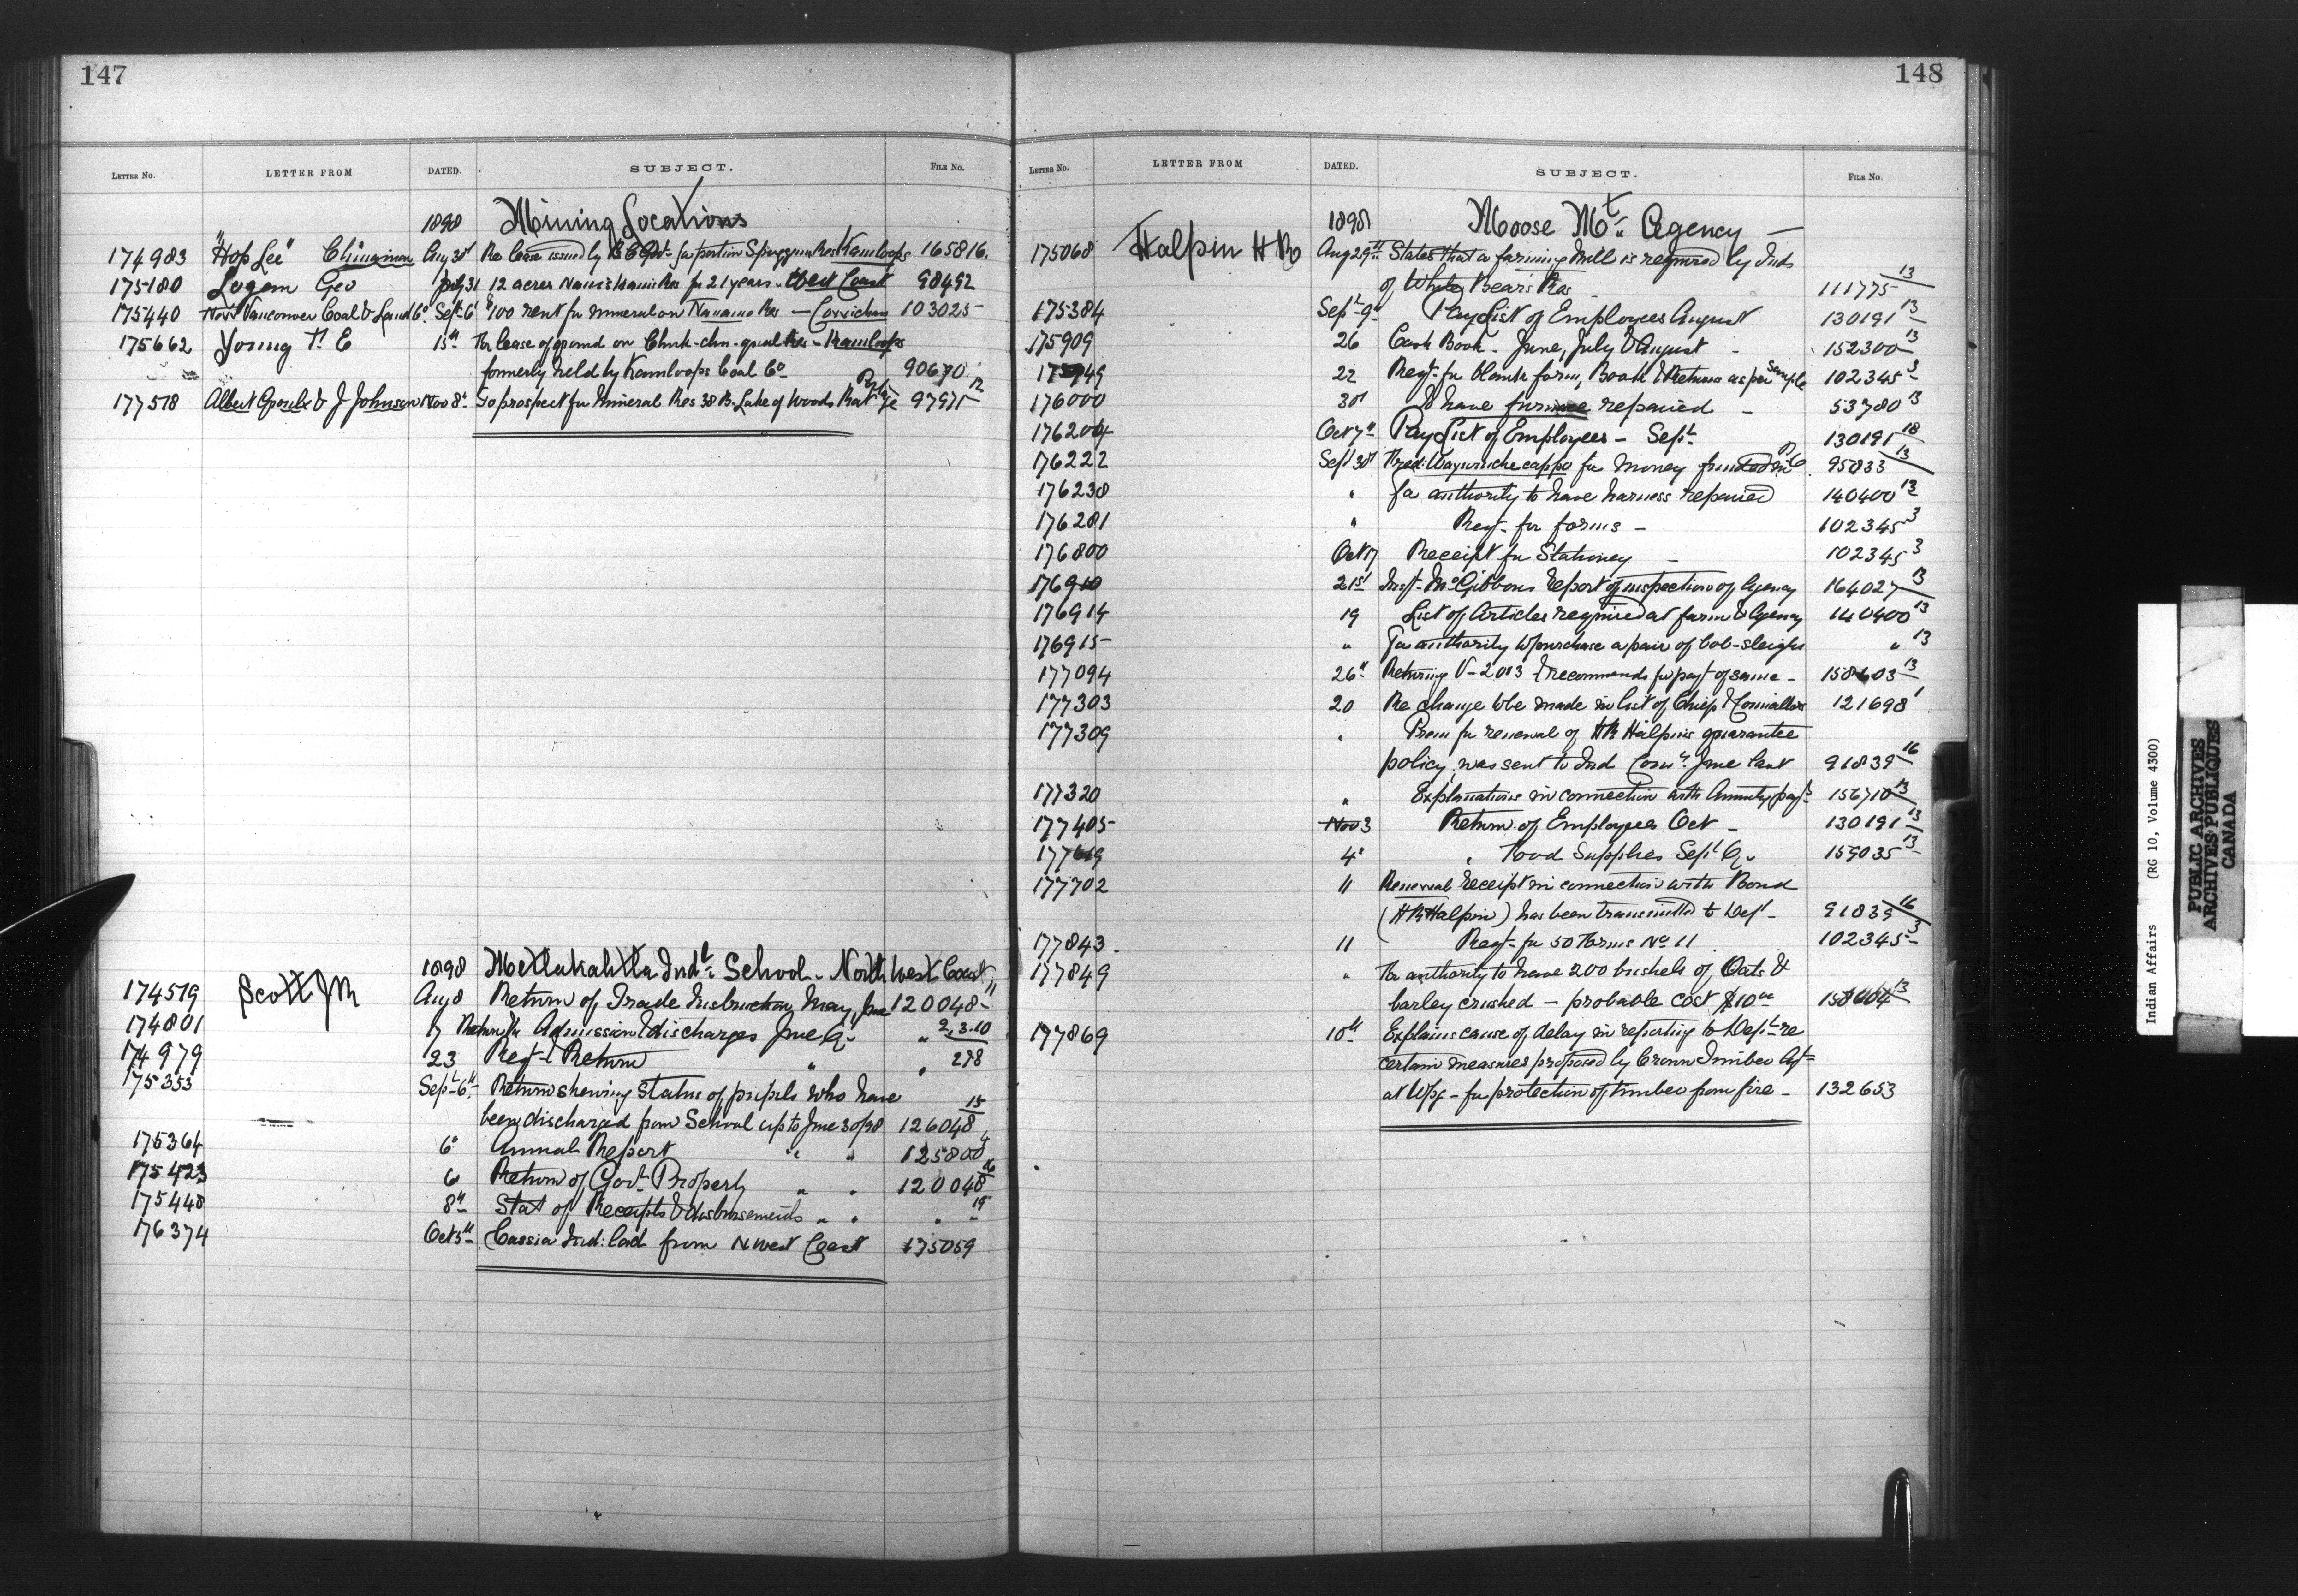 147
LETTER No. LETTER FROM DATED. SUBJECT. FILE No.
1898 Mining Locations
174983 "Hop Lee" Chinaman Aug 30th Re lease issued by B C Govt for portion Spuzzum Res Kamloops 165816.
175180 Logan Geo July 31 12 acres Res for 21 years - West Coast 98492
175440 New Vancouver Coal & Land Co. Sept 6 $100 rent for mineral on Nanaimo Res - Cowichan 103025
175662 Young T. E 15th For lease of ground on Chuk-chu-qualk Res - Kamloops
formerly held by Kamloops Coal Co 90670
177518 Albert & J Johnson Nov 8th To prospect for mineral Res 38 B. Lake of Woods Rat Portage 97971 12
1898 Metlakahtla Indl School - North West Coast
174519 Scott J R Aug 8 Return of Trade Instruction May, June 120048
174801 17 Return for Admission & discharges June Qr " 2,3.10
174979 23 Reqt & Return " " 278
175353 Sept 6th Return shewing Status of pupils who have
been discharged from School up to June 30/98 126048 15
175364 6th Annual Report " " 125800 4
175423 6 Return of Govt Property " " 120048 16
175448 8th Stat of Receipts & disbursements " " " 19
176374 Oct 5th Cassia Ind: lad from N West Coast 175059
148
LETTER No. LETTER FROM DATED. SUBJECT. FILE No.
1898 Moose Mt. Agency
175068 Halpin H R Aug 29th States that a fanning Mill is required by Inds
of White Bear's Res 111775 13
175384 Sept 9th Pay List of Employees August 130191 13
175909 26 Cash Book - June, July & August 152300 13
22 Reqt for blank form, Book & Returns as per Sample 102345 3
176000 30th To have furnace repaired 53780 13
176204 Oct 7th Pay List of Employees - Sept 130191 18
176222 Sept 30th for money from 95833 13
176238 " For authority to have harness repaired 140400 13
176281 " Reqt - for forms - 102345 3
176800 Oct 17 Receipt for Stationery 102345 3
176910 21st Inst- McGibbons Report of inspection of Agency 164027 13
176914 19 List of Articles required at farm & Agency 140400 13
176915 " For authority to purchase a pair of bob-sleighs " 13
177094 26th Returning V-2013 & recommends for payt of same - 158603 13
177303 20 Re change to be made in list of Chiefs & Councillors 121698 1
177309 " Prem for renewal of H R Halpins guarantee
policy, was sent to Ind Comr June last 91839 16
177320 " Explanations in connection with Annuity payts 156710 13
177405 Nov 3 Return of Employees Oct 130191 13
177619 4th " Food Supplies Sept Qr 159035 13
177702 11 Renewal receipt in connection with Bond
(H R Halpin) has been transmitted to Dept - 91839 16
177843 11 Reqt - for 50 Forms No 11 102345 3
177849 " For authority to have 200 bushels of Oats &
barley crushed - probable cost $10.00 158604 13
177869 10th Explains cause of delay in reporting to Dept re
certain measures proposed by Crown Timber Agt
at Wpg - for protection of timber from fire - 132653
Indian Affairs (RG 10, Volume 4300)
PUBLIC ARCHIVES
ARCHIVES PUBLIQUES
CANADA